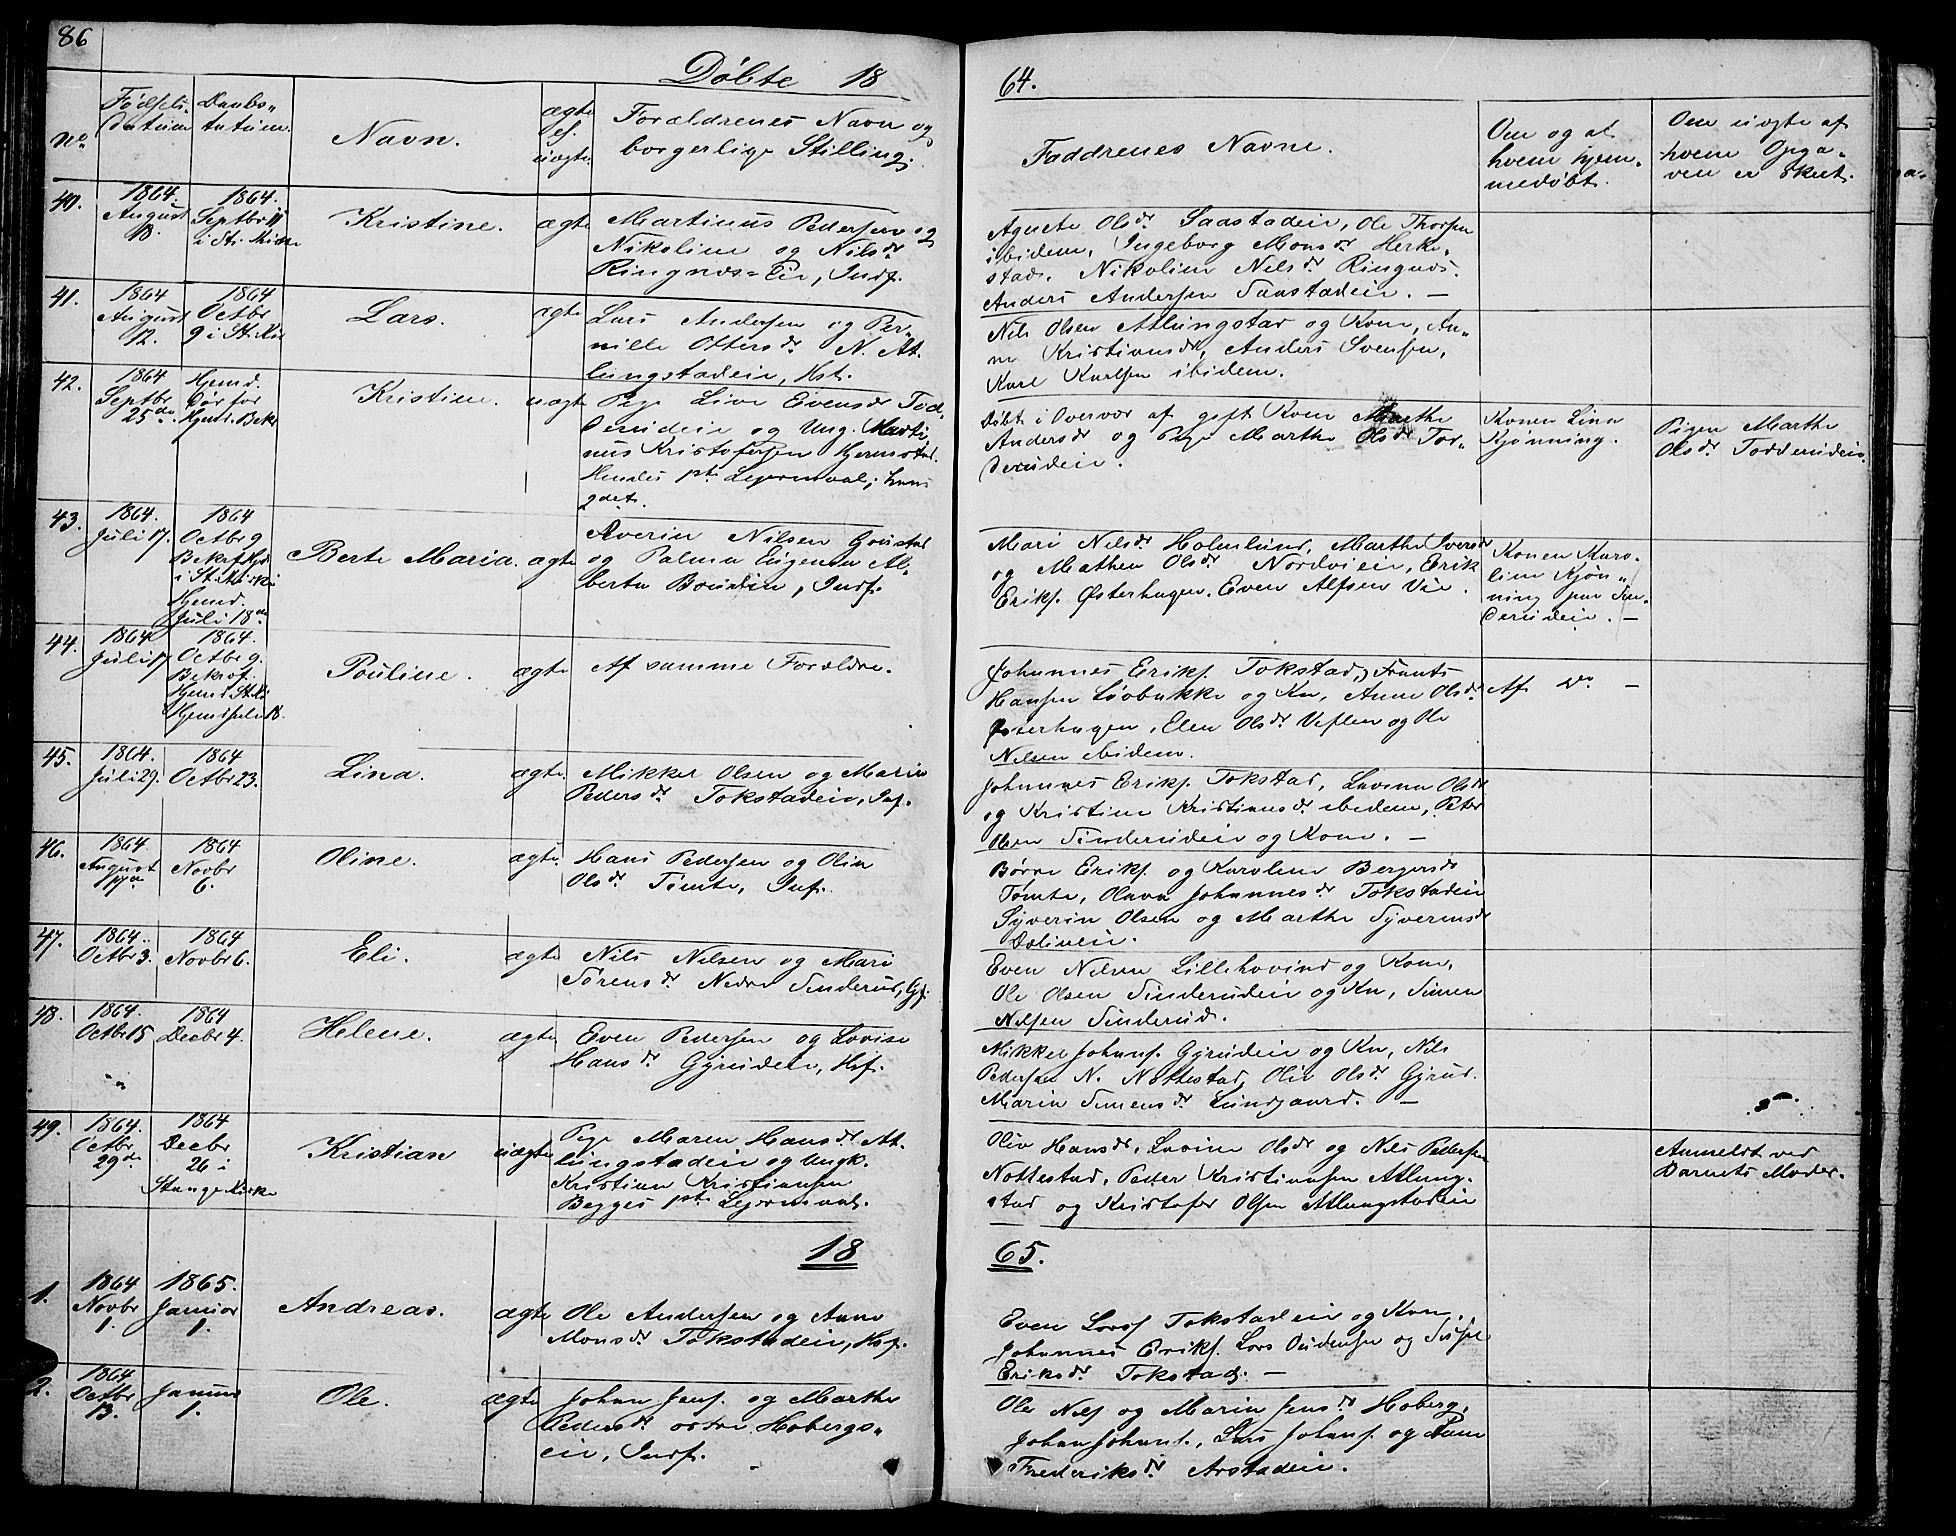 86
Döbte 18
64.
No
Fødsels-
datum
Daabs-
datum.
Navn.
ægte
el.
uægte.
Forældrenes Navn og
borgerlige Stilling.
Faddrenes Navne.
Om og af
hvem hjem-
medøbt.
Om uægte af
hvem Opga-
ven er skeet.
40.
1864.
August
18.
1864.
Septbr 11
i St.
Kristine.
ægte
Martinus Pedersen og
Nikoline og Nilsdr
Ringnes-Eie, Indf.
Agnete Olsdr Saastadeie, Ole Thorsen
ibidem, Ingeborg Monsdr Herke-
stad. Nikoline Nelsdr Ringnes.
Anders Andersen Saastadeie. —
41.
1864
August
12.
1864
Octbr
9 i St.
Lars.
ægte
Lars Andersen og Per-
nille Ottersdr N. At-
lungstadeie, Hst.
Nils Olsen Atlungstad og Kone, An-
ne Kristiansdr, Anders Svensen,
Karl Karlsen ibidem.
42.
1864
Septbr
25de
Hjemd.
Død før
Hjemd. Bekr.
Kristine.
uægte
Pige Live Evensdr Tod-
derudeie og Ung. Marti-
nus Kristofersen Hjermstad.
Hendes 1ste Leiermaal, hans
2det.
Døbt i Overvær af gift Kone Marthe
Andersdr og Pige Marthe Olsdr Tod-
derudeie.
Konen Lina
Kjønning.
Pigen Marthe
Olsdr Todderudeie.
43.
1864.
Juli 17.
1864
Octbr 9
Bekræft
i St. Kirke
Hjemd.
Juli 18de
Berte Maria.
ægte
Averin Nilsen Gaustad
og Palma Eugenia Al-
berta Boudin, Indf.
Mari Nelsdr Holmlund, Marthe Iversdr
og Mathea Olsdr Nordvieie, Erik
Eriks. Østerhagen. Even Alfsen Vie.
Konen Karo-
line Kjøn-
ning paa
derudeie. —
44.
1864
Juli 17
1864.
Octbr 9.
Bekræf.
Hjemd St. Ki
Hjemd Juli 18.
Pouline.
ægte
Af samme Forældre.
Johannes Eriks. Tokstad, Frants
Hansen Løbakke og Kn, Anne Olsdr
Østerhagen, Elen Olsdr Veflen og Ole
Nelsen ibidem.
Af do —
45.
1864.
Juli 29.
1864
Octbr 23.
Lina.
ægte.
Mikkel Olsen og Marie
Pedersdr Tokstadeie, Inf.
Johannes Eriks. Tokstad, Lovina Olsdr
og Kristine Kristiansdr ibidem, Peter
Olsen Sinderudeie og Kone. —
46.
1864.
August
17de
1864
Novbr
6.
Oline.
ægte.
Hans Pedersen og Olia
Olsdr Tømte, Inf.
Børre Eriks. og Karoline Bergersdr
Tømte, Olava Johannesdr Tokstadeie
Syverin Olsen og Marthe Syverinsdr
47.
1864.
Octbr 3.
1864
Novbr 6.
Eli.
ægte
Nils Nelsen og Mari
Sørensdr Nedre Sinderud, Gf.
Even Nelsen Lillehovind og Kone,
Ole Olsen Sinderudeie og Kn, Simen
Nelsen Sinderud.
48.
1864.
Octbr 15
1864
Decbr 4.
Helene.
ægte
Even Pedersen og Lovise
Hansdr Gyrudeie, Hsf.
Mikkel Johans. Gyrudeie og Kn, Nils
Pedersen N. Nottestad, Oliv Olsdr Gyrud.
Marie Simensdr Lundgaard. —
49.
1864.
Octbr
29de
1864
Decbr
26 i
Stange Kirke
Kristian
uægte
Pige Maren Hansdr At-
lungstadeie og Ungk.
Kristian Kristiansen
Begges 1ste Leiermaal.
Oliv Hansdr, Lovine Olsdr og Nils Pedersen
Nottestad, Peder Kristiansen Atlung-
stad og Kristofer Olsen Atlungstadeie
Anmeldt ved
Barnets Moder.
18
65.
1.
1864
Novbr
1.
1865.
Januar
1.
Andreas.
ægte
Ole Andersen og Anne
Monsdr Tokstadeie, Hsf.
Even Larsf Tokstadeie og Kone,
Johannes Eriks. Lars Oudensen og
Eriksdr Tokstad. —
2.
1864
Octbr
13.
Januar
1.
Ole.
ægte
Johan Jens. og Marthe
Pedersdr østre Hobergs-
eie, Indf.
Ole Nels og Marie Jensdr Hoberg,
Johan Johans., Lars Johans. og Anne
Frederiksdr Arstadeie.